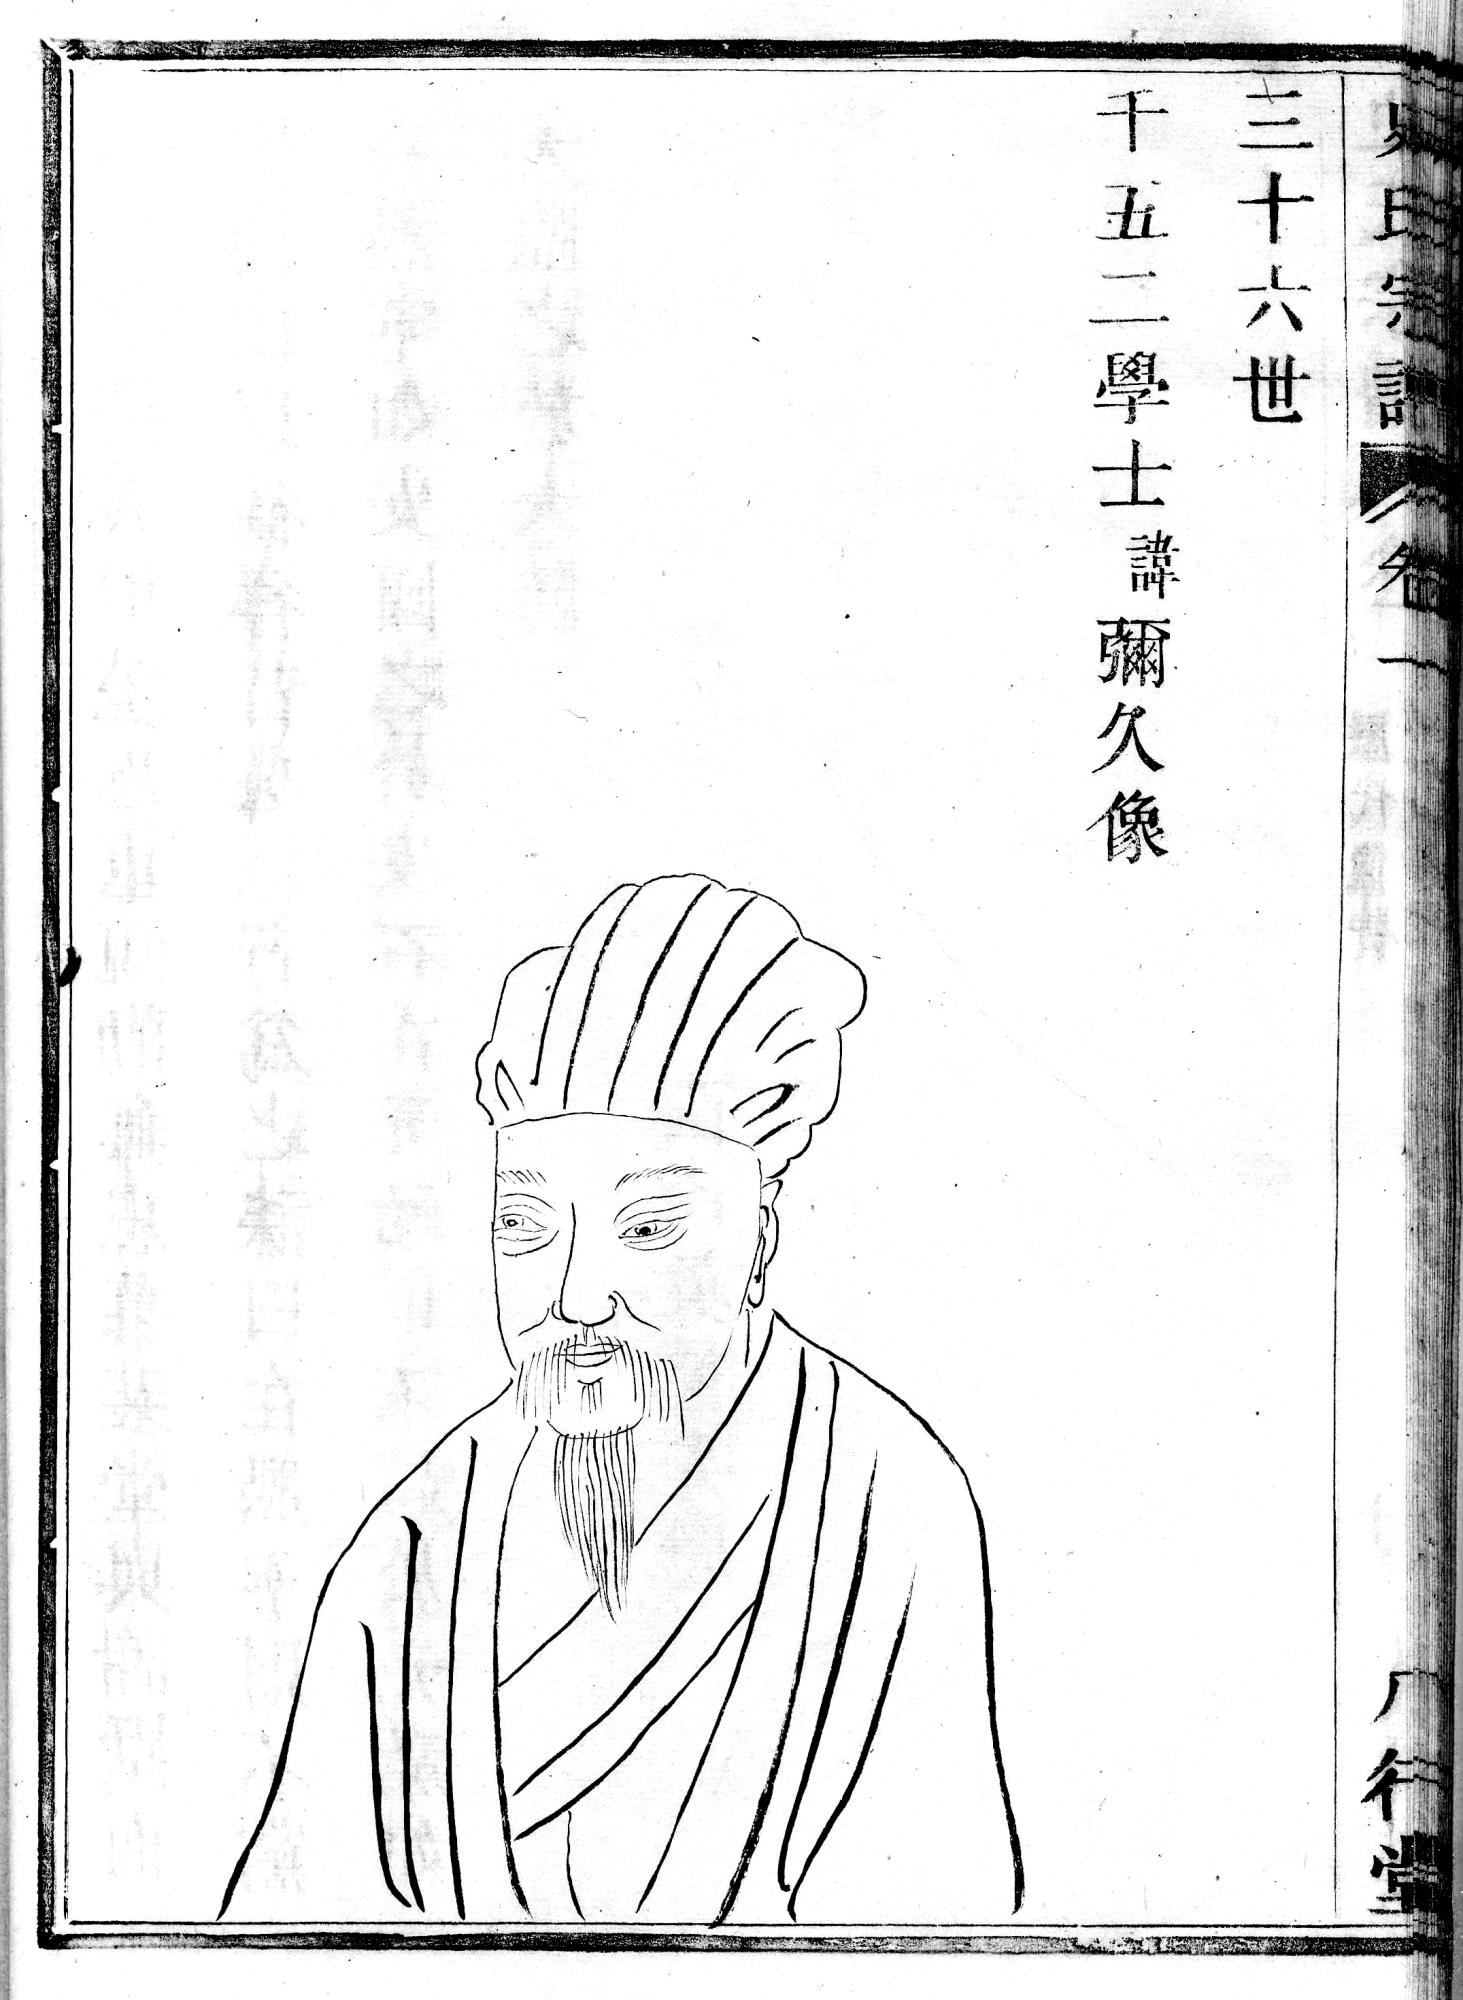 史氏宗譜 卷一 八行堂
三十六世
千五二學士 諱彌久像